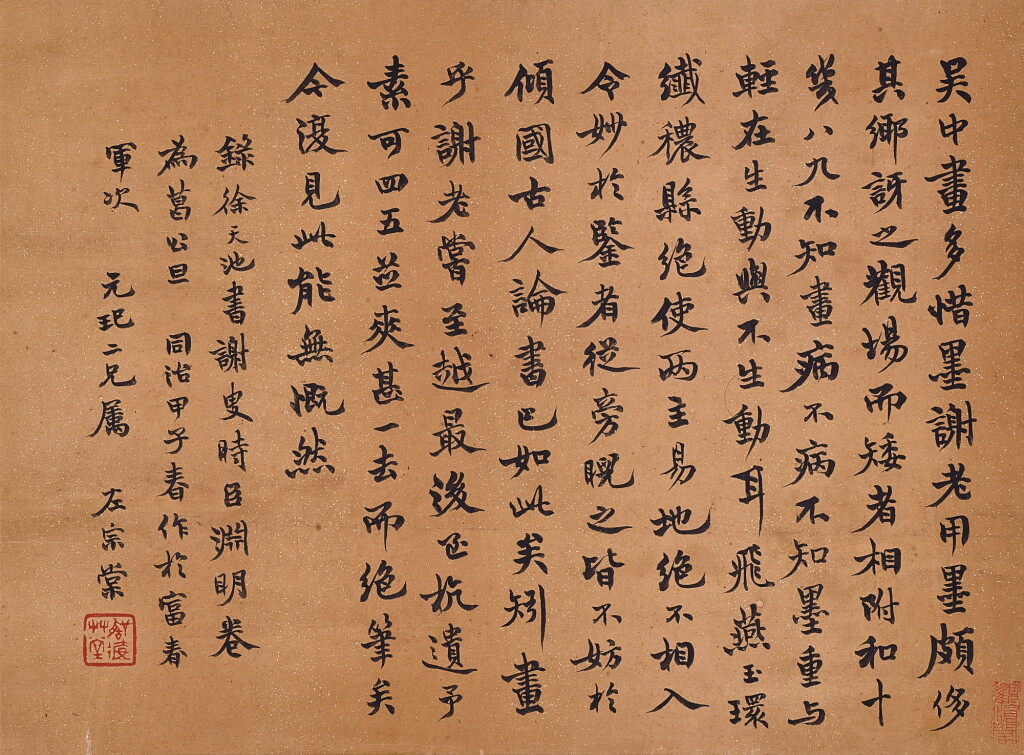 吴中畫多惜墨謝老用墨頗侈
其鄉訝之觀場而矮者相附和十
㡬八九不知畫病不病不知墨重与
輕在生動與不生動耳飛燕玉環
纖穠縣絶使兩主易地絶不相入
令妙於鑒者從旁睨之皆不妨於
傾國古人論書已如此矣矧畫
乎謝老嘗至越最後至杭遺予
素可四五並爽甚一去而絶筆矣
今復見此能無慨然
錄徐天池書謝叟時臣淵明卷
為葛公旦 同治甲子春作於富春
軍次 元玘二兄属 左宗棠